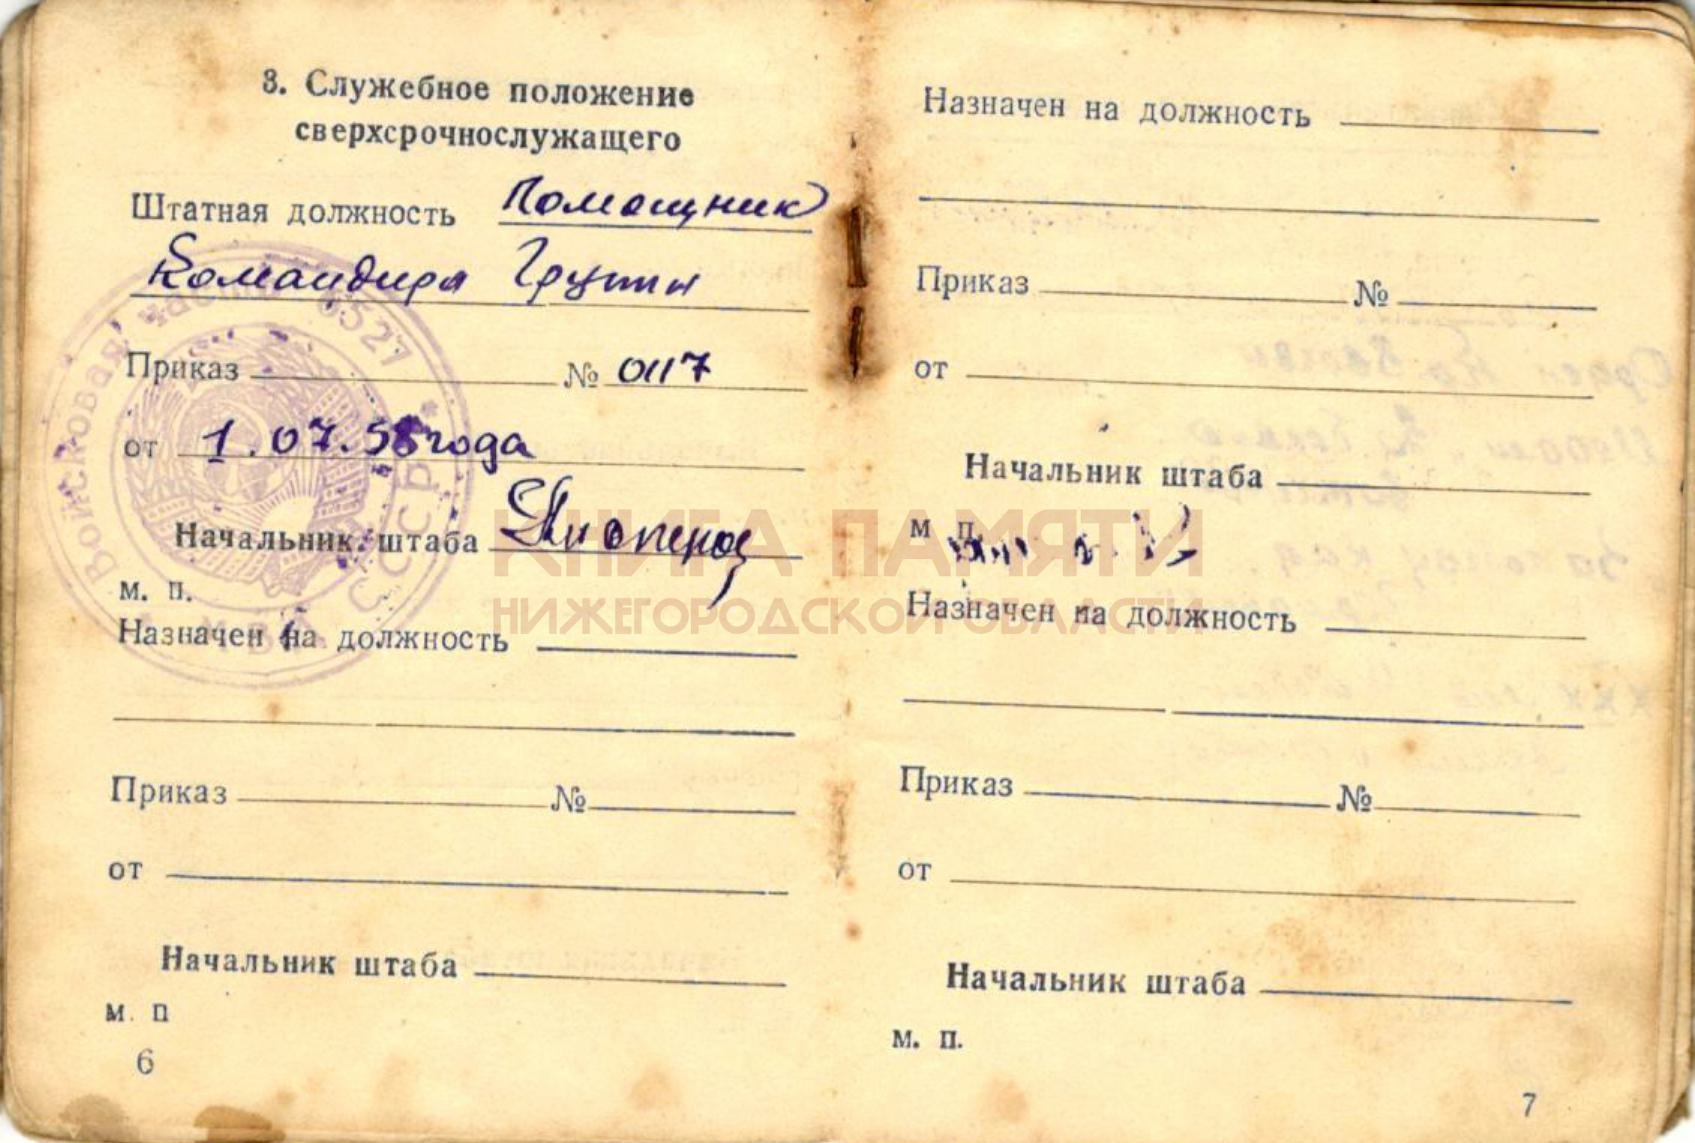 3. Служебное положение
сверхсрочнослужащего
Штатная должность Помощник
Командира Группы
Приказ № 0117
от 1.07.58 года
Начальник штаба
м. п.
Назначен на должность
Приказ №
от
Начальник штаба
м. п
6
Войсковая часть 6527
СССР
МВД
Назначен на должность
Приказ №
от
Начальник штаба
м п.
Назначен на должность
Приказ №
от
Начальник штаба
м. п.
7
КНИГА ПАМЯТИ
НИЖЕГОРОДСКОЙ ОБЛАСТИ